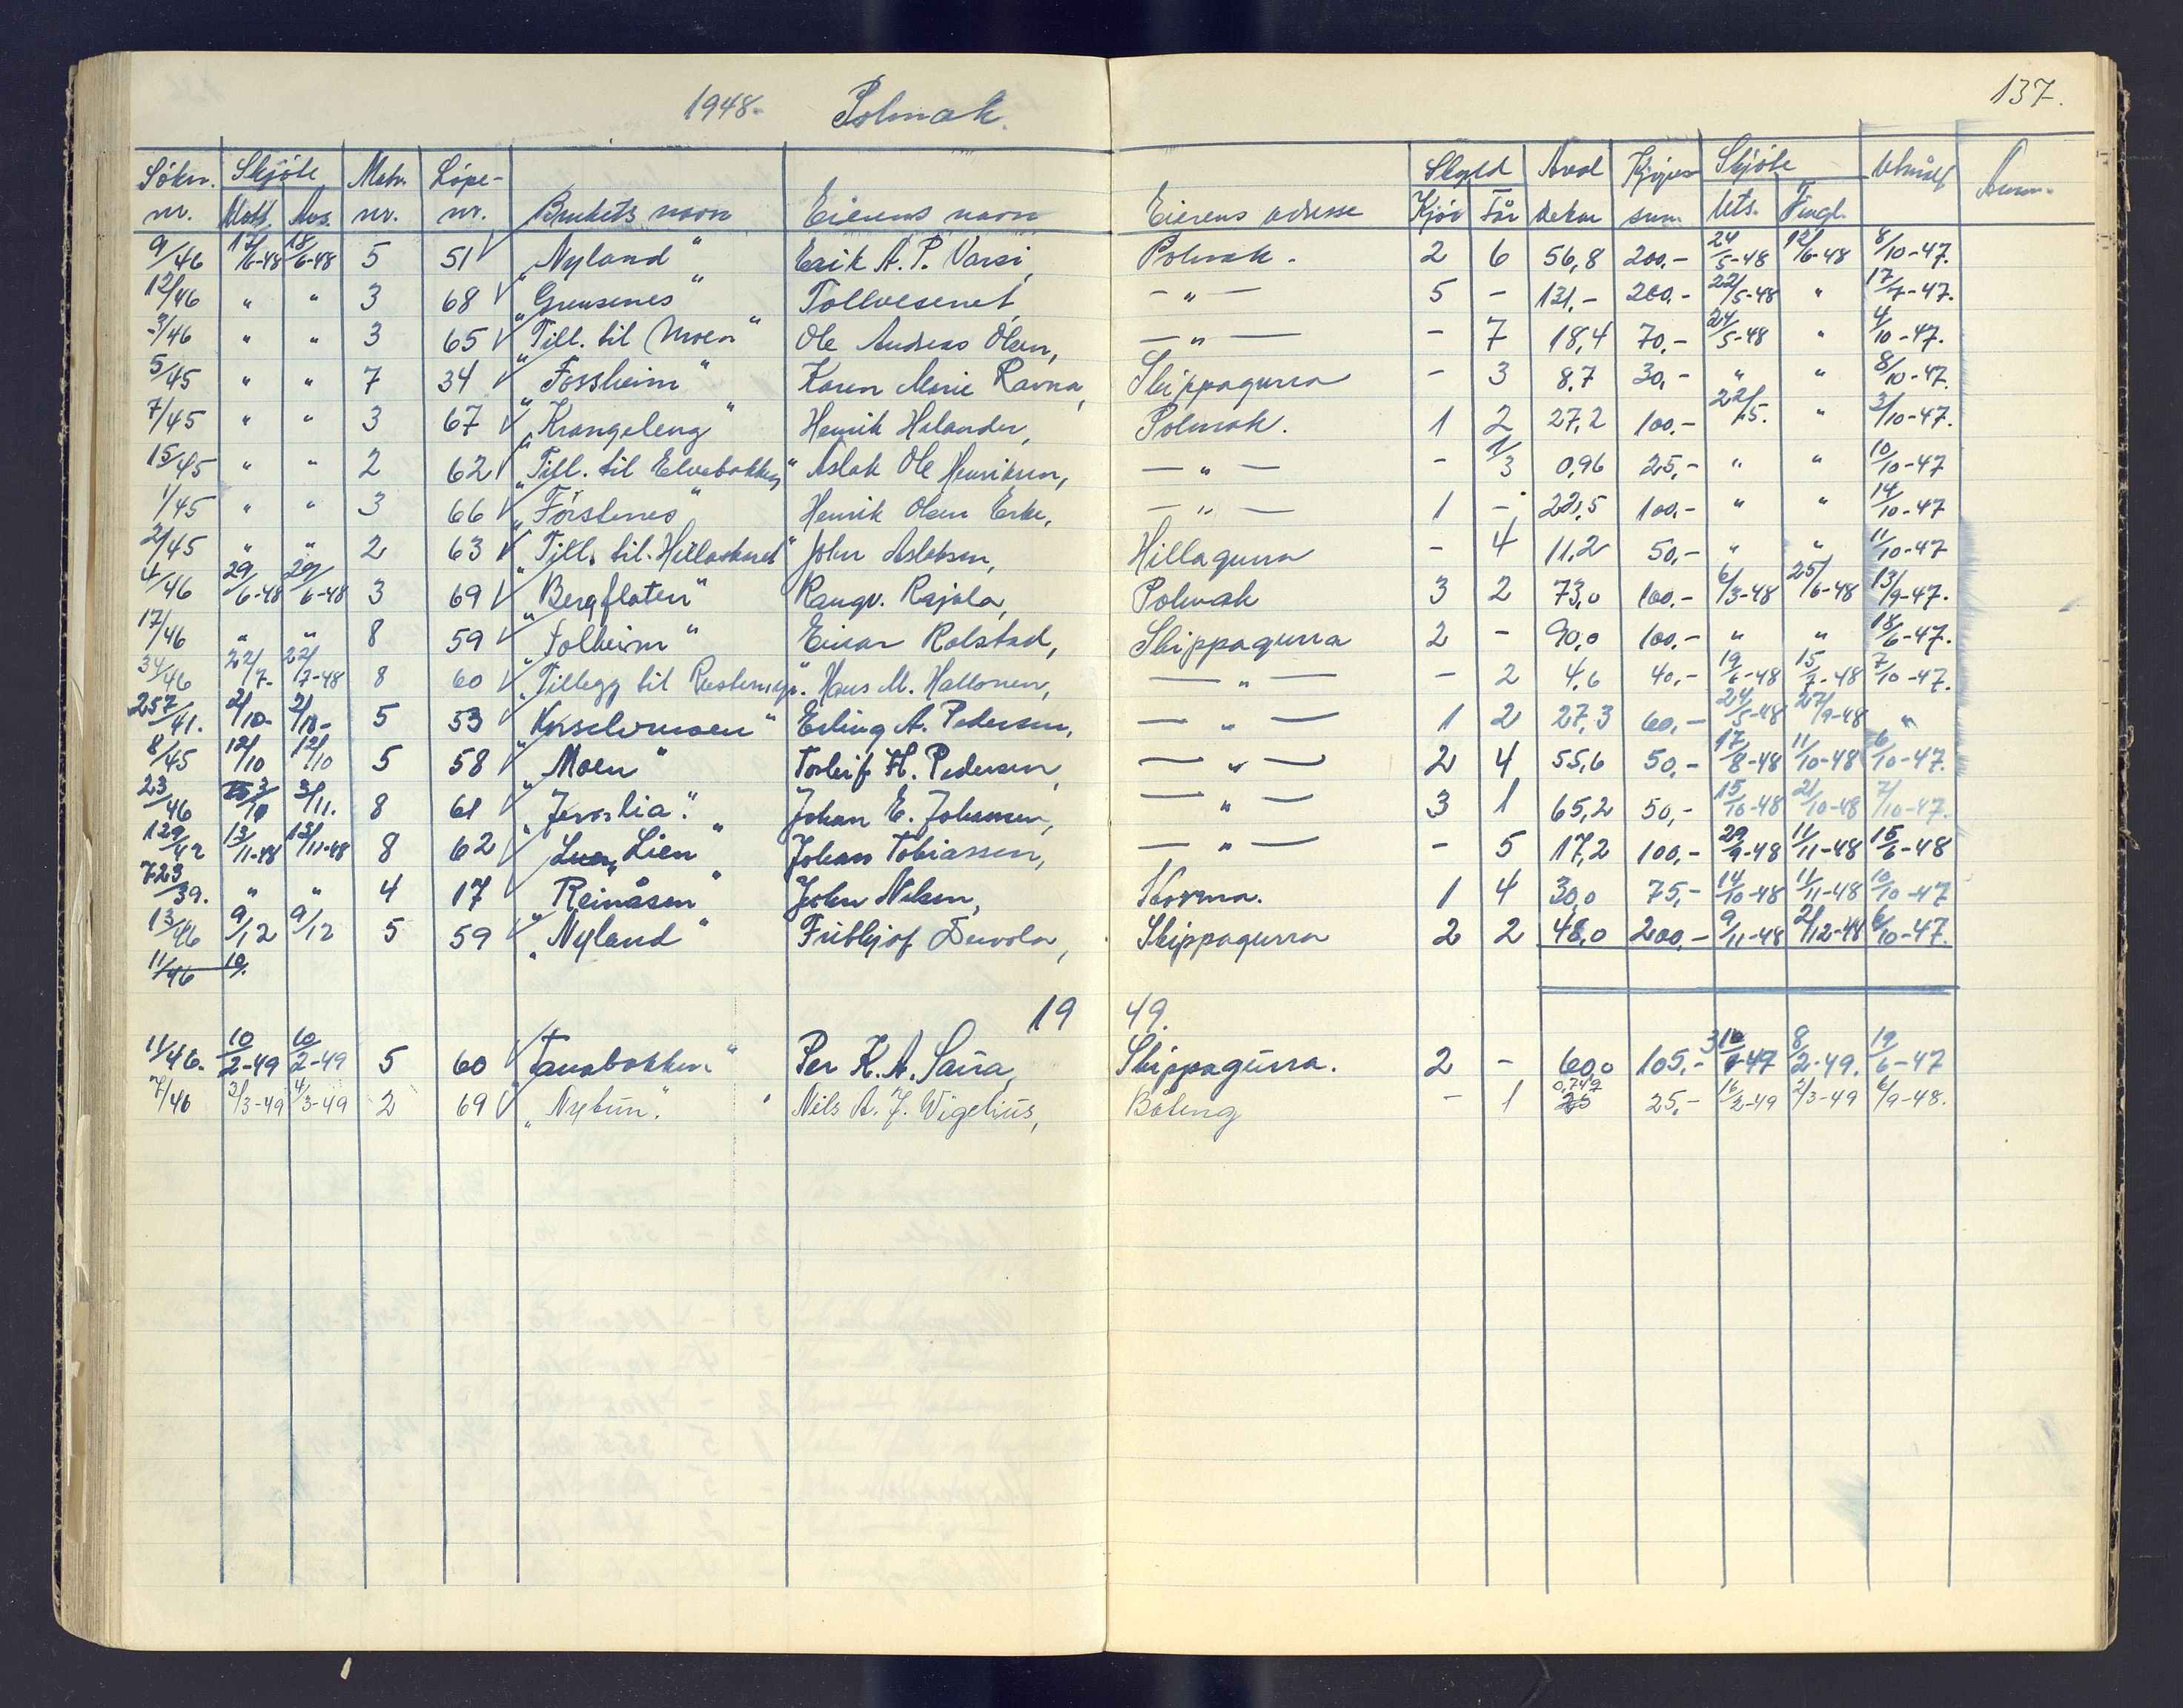 137.
1948. Polmak.
Søkn. Skjöte Matr. Løpe- Eierens adresse Skyld Areal Skjöte
nr. Mott. Avs. nr. nr. Brukets navn Eierens navn Kjör Får dekar sum. Uts. Tingl. Anm.
9/46 12/6-48 18/6-48 5 51 "Nyland" Erik A. P. Varsi, Polmak. 2 6 56,8 200.- 24/5-48 12/6-48 8/10-47.
12/46 " " 3 68 "Grensenes" Tollvesenet, - " - 5 - 131.- 200.- 22/5-48 " 17/7-47.
3/46 " " 3 65 "Till. til Moen" Ole Andreas Olsen, - " - - 7 18,4 70,- 24/5-48 " 4/10-47.
5/45 " " 7 34 "Fossheim" Karen Marie Ravna, Skippagurra - 3 8,7 30,- " " 8/10-47.
7/45 " " 3 67 "Krangeleng" Henrik Helander, Polmak. 1 2 27,2 100.- 22/5. " 3/10-47.
15/45 " " 2 62 "Till. til Elvebakken" Aslak Ole Henriksen, - " - - 1/3 0,96 25,- " " 10/10-47
1/45 " " 3 66 "Förstenes" Henrik Olsen Erke, - " - 1 - 22,5 100.- " " 14/10-47
2/45 " " 2 63 "Till. til Hillaskaret" John Aslaksen, Hillagurra - 4 11,2 50,- " " 11/10-47
4/46 29/6-48 29/6-48 3 69 "Bergfloten" Rangv. Rajala, Polmak 3 2 73,0 100.- 6/3-48 25/6-48 13/9-47.
17/46 " " 8 59 "Solheim" Einar Rolstad, Skippagurra 2 - 90,0 100.- " " 18/6-47.
34/46 22/7- 22/7-48 8 60 "Tillegg til" Hans M. Hallonen, - " - - 2 4,6 40,- 19/6-48 15/7-48 7/10-47.
257/41. 2/10- 2/10- 5 53 Erling A. Pedersen, - " - 1 2 27,3 60,- 24/5-48 27/9-48 "
8/45 12/10 12/10 5 58 "Moen" Torleif H. Pedersen, - " - 2 4 55,6 50,- 17/8-48 11/10-48 6/10-47.
23/46 3/11. 8 61 "Jernlia". Johan E. Johansen, - " - 3 1 65,2 50,- 15/10-48 21/10-48 7/10-47.
129/42 13/11-48 13/11-48 8 62 "Lien" Johan Tobiassen, - " - - 5 17,2 100,- 29/9-48 11/11-48 15/6-48
723/39. " " 4 17 "Reinåsen" John Nilsen, 1 4 30,0 75,- 14/10-48 11/11-48 10/10-47
13/46 9/12 9/12 5 59 "Nyland" Fridtjof Suvola, Skippagurra 2 2 48,0 200,- 9/11-48 2/12-48 6/10-47.
11/46 10/.
19 49.
11/46. 10/2-49 10/2-49 5 60 "Tanabakken" Per K. A. Saira, Skippagurra. 2 - 60,0 105,- 8/2-49. 19/6-47
7/46 3/3-49 4/3-49 2 69 "Nytun". Nils A. J. Wigelius, Båteng - 1 0,749 25 25,- 16/2-49 2/3-49 6/9-48.